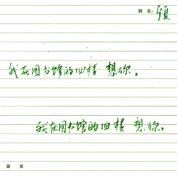 姓名：
我在图书馆的四楼 想你。
我在图书馆的四楼 想你。